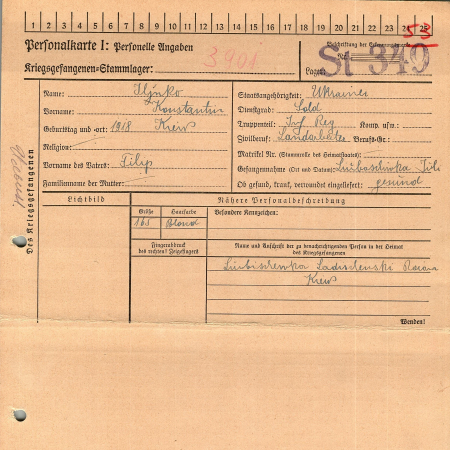 1 2 3 4 5 6 7 8 9 10 11 12 13 14 15 16 17 18 19 20 21 22 23 24 25
53
Personalkarte I: Personelle Angaben
Beschriftung der Erkennungsmarke
Nr.
3901
Kriegsgefangenen-Stammlager:
Lager:
St 340
Name: Iljnko
Vorname: Konstantin
Geburtstag und -ort: 1918 Kiew
Religion:
Vorname des Vaters: Filip
Familienname der Mutter:
Staatsangehörigkeit: Ukrainer
Dienstgrad: Sold
Truppenteil: Inf Reg Komp. usw.:
Zivilberuf: Landarbeiter Berufs-Gr.:
Matrikel Nr. (Stammrolle des Heimatstaates):
Gefangennahme (Ort und Datum):
Ob gesund, krank, verwundet eingeliefert: gesund
Des Kriegsgefangenen
Lichtbild
Nähere Personalbeschreibung
Größe
Haarfarbe
Besondere Kennzeichen:
165
Blond
Fingerabdruck
des rechten! Zeigefingers
Name und Anschrift der zu benachrichtigenden Person in der Heimat
des Kriegsgefangenen
Kiew
Wenden!